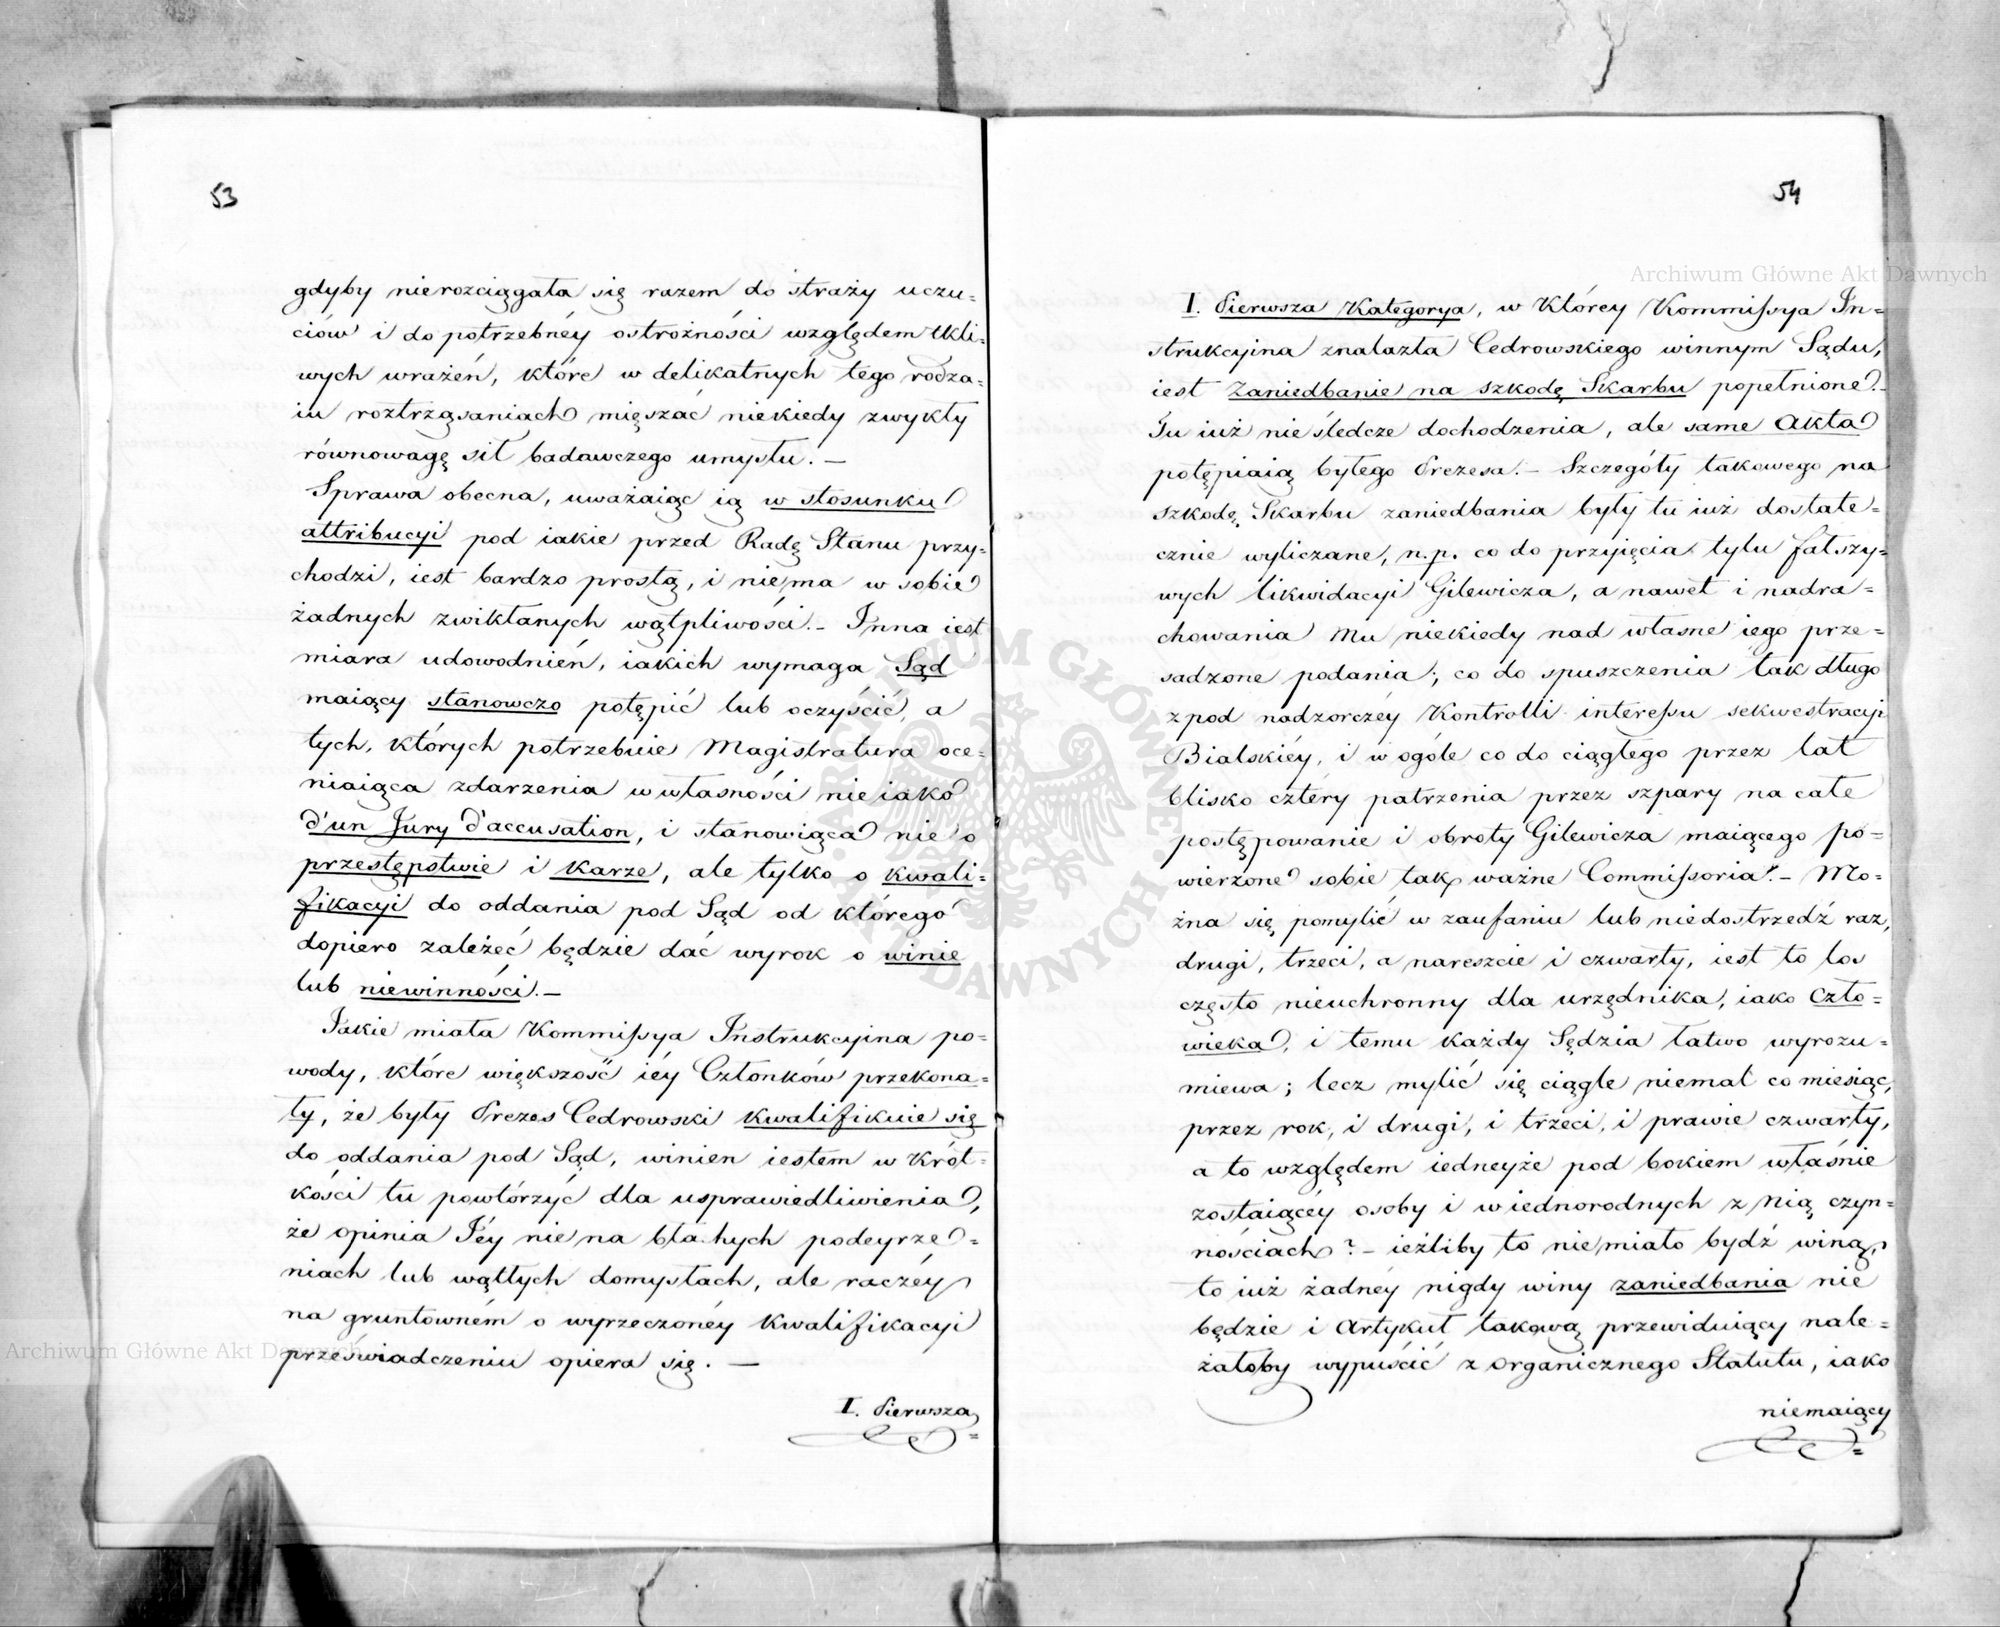 53
gdyby nierozciągała się razem do straży uczu=
ciów i do potrzebnéy ostrożności względem tkli=
wych wrażeń, które w delikatnych tego rodza=
iu roztrząsaniach mięszać niekiedy zwykły
równowagę sił badawczego umysłu. —
Sprawa obecna, uważaiąc ią w stosunku
attribucyi pod iakie przed Radę Stanu przy=
chodzi, iest bardzo prostą, i niema w sobie
żadnych zwikłanych wątpliwości. – Inna iest
miara udowodnień, iakich wymaga Sąd
maiący stanowczo potępić lub oczyścić, a
tych, których potrzebuie Magistratura oce=
niaiąca zdarzenia w własności nieiako
d'un Jury d'accusation, i stanowiąca nie o
przestępstwie i karze, ale tylko o kwali=
fikacyi do oddania pod Sąd od którego
dopiero zależeć będzie dać wyrok o winie
lub niewinności. —
Jakie miała Kommissya Instrukcyina po=
wody, które większość iéy Członków przekona=
ły, że były Prezes Cedrowski kwalifikuie się
do oddania pod Sąd, winien iestem w krót=
kości tu powtórzyć dla usprawiedliwienia,
że opinia Jéy nie na błahych podeyrze=
niach lub wątłych domysłach, ale raczéy
na gruntowném o wyrzeczonéy kwalifikacyi
przeświadczeniu opiera się. —
I. Pierwsza
54
I. Pierwsza Kategorya, w którey Kommissya In=
strukcyina znalazła Cedrowskiego winnym Sądu,
iest Zaniedbanie na szkodę Skarbu popełnione. –
Tu iuż nie śledcze dochodzenia, ale same Akta
potępiaią byłego Prezesa. – Szczegóły takowego na
szkodę Skarbu zaniedbania były tu iuż dostate=
cznie wyliczane, n.p. co do przyjęcia tylu fałszy=
wych likwidacyi Gilewicza, a nawet i nadra=
chowania Mu niekiedy nad własne iego prze=
sadzone podania; co do spuszczenia tak długo
z pod nadzorczéy Kontrolli interessu sekwestracyi
Bialskiéy, i w ogóle co do ciągłego przez lat
blisko cztéry patrzenia przez szpary na całe
postępowanie i obroty Gilewicza maiącego po=
wierzone sobie tak ważne Commissoria. – Mo=
żna się pomylić w zaufaniu lub niedostrzedź raz,
drugi, trzeci, a nareszcie i czwarty, iest to los
często nieuchronny dla urzędnika, iako Czło=
wieka, i temu każdy Sędzia łatwo wyrozu=
miewa; lecz mylić się ciągle niemal co miesiąc,
przez rok, i drugi, i trzeci, i prawie czwarty,
a to względem iedneyże pod bokiem właśnie
zostaiącéy osoby i w iednorodnych z Nią czyn=
nościach? – ieźliby to nie miało bydź winą,
to iuż żadnéy nigdy winy zaniedbania nie
będzie i Artykuł takową przewiduiący nale=
żałoby wypuścić z organicznego Statutu, iako
niemaiący
Archiwum Główne Akt Dawnych
Archiwum Główne Akt Dawnych
ARCHIWUM GŁÓWNE AKT DAWNYCH